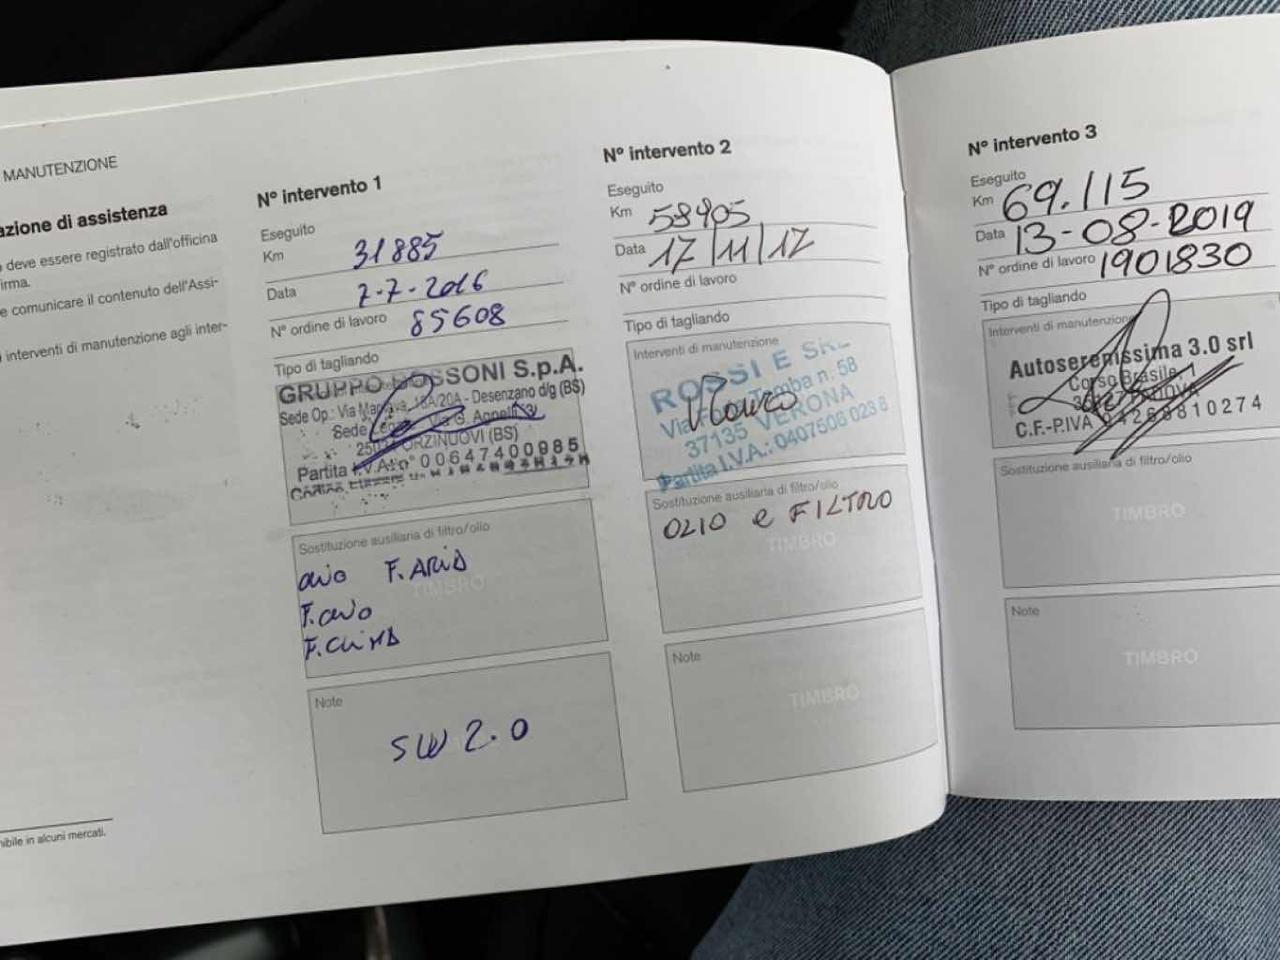 MANUTENZIONE
azione di assistenza
deve essere registrato dall'officina
irma.
e comunicare il contenuto dell'Assi-
interventi di manutenzione agli inter-
nibile in alcuni mercati.
N° intervento 1
Eseguito
Km 31885
Data 7-7-2016
N° ordine di lavoro 85608
Tipo di tagliando
GRUPPO BOSSONI S.p.A.
Sede Op.: Via Mantova, - Desenzano d/g (BS)
Sede Via G. Agnelli
ORZINUOVI (BS)
Partita I.V.A. n° 00647400985
Sostituzione ausiliaria di filtro/olio
olio F. ARIA
F. olio
F. CLIMA
TIMBRO
Note
SW 2.0
N° intervento 2
Eseguito
Km 58905
Data 17/11/17
N° ordine di lavoro
Tipo di tagliando
Interventi di manutenzione
ROSSI E SRL
Via Tomba n. 58
37135 VERONA
Partita I.V.A.: 0407506 023 8
Sostituzione ausiliaria di filtro/olio
OLIO e FILTRO
TIMBRO
Note
TIMBRO
N° intervento 3
Eseguito
Km 69.115
Data 13-08-2019
N° ordine di lavoro 1901830
Tipo di tagliando
Interventi di manutenzione
Autoserenissima 3.0 srl
Corso Brasile, 1
C.F.-P.IVA 04268810274
Sostituzione ausiliaria di filtro/olio
TIMBRO
Note
TIMBRO